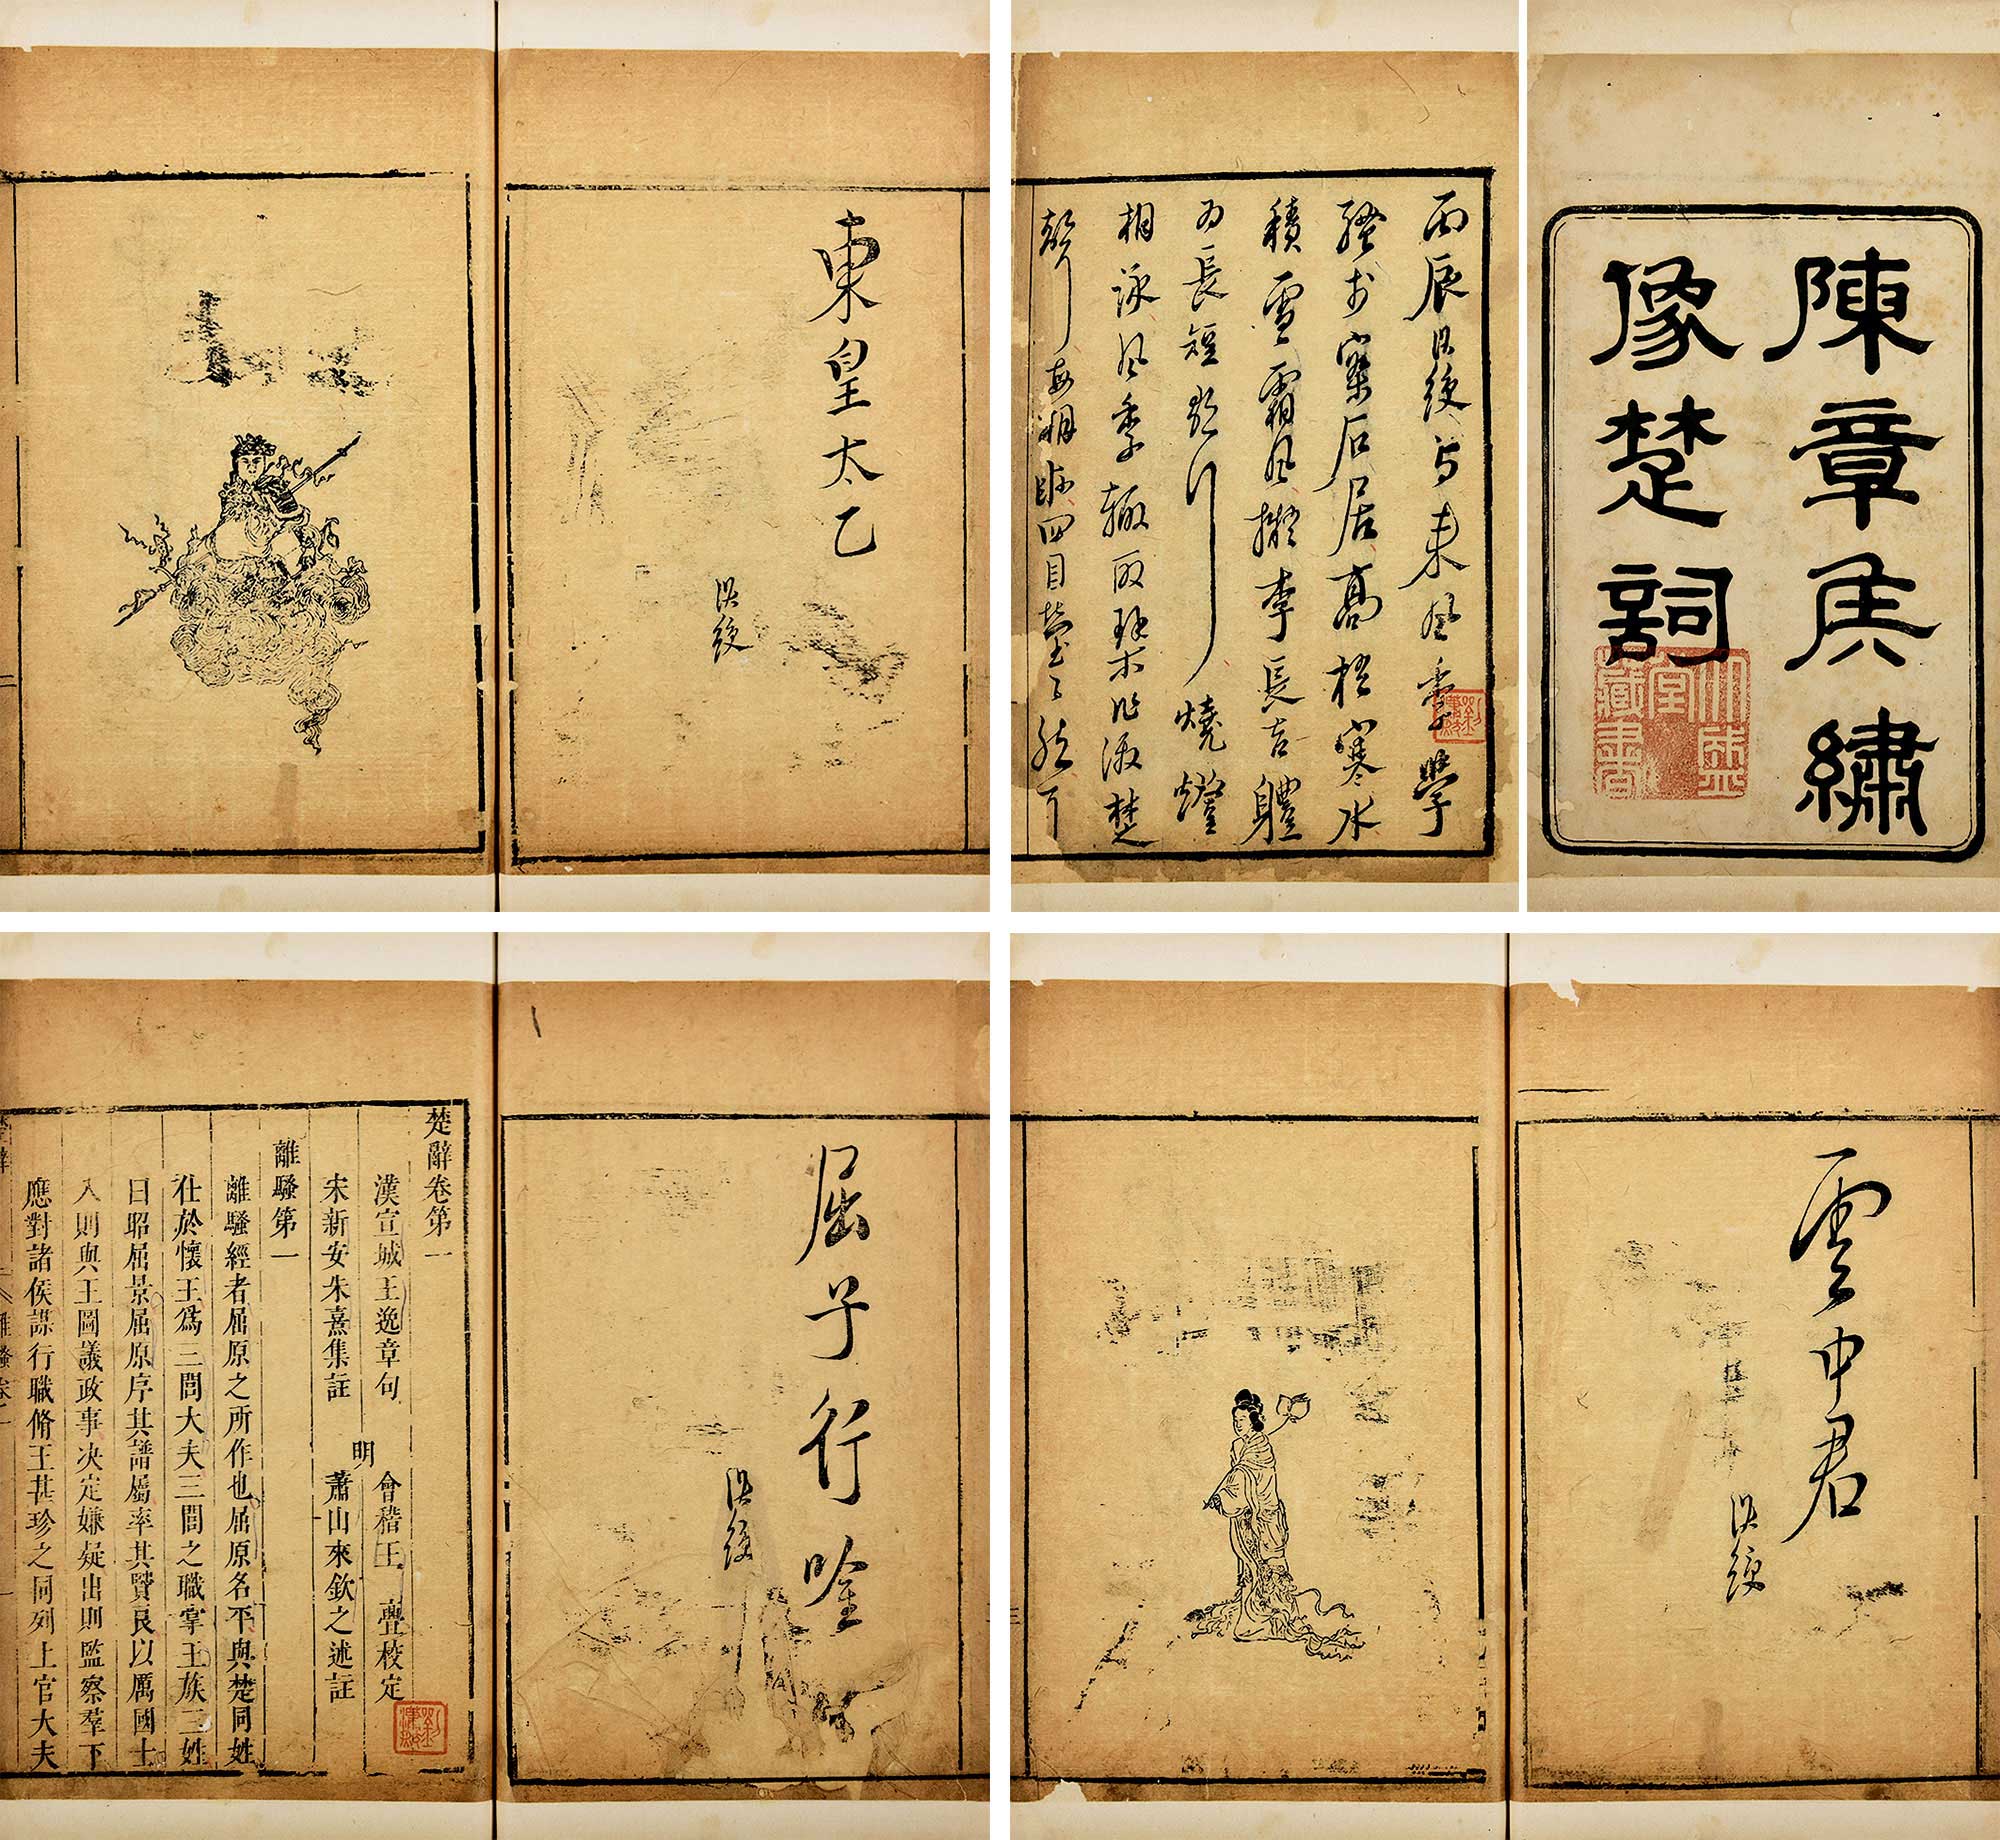 陳章侯繡
像楚詞
丙辰洪綬與來風季學
騷於搴石居高梧寒水
積雪霜風擬李長吉體
為長短歌行燒燈
相詠風季輙取琴作激楚
聲每相眎四目瑩瑩然耳
東皇太乙
洪綬
雲中君
洪綬
屈子行吟
洪綬
楚辭卷第一
漢宣城王逸章句
宋新安朱熹集註
明
會稽王亹校定
蕭山來欽之述註
離騷第一
離騷經者屈原之所作也屈原名平與楚同姓
仕於懷王爲三閭大夫三閭之職掌王族三姓
曰昭屈景屈原序其譜屬率其賢良以厲國士
入則與王圖議政事決定嫌疑出則監察羣下
應對諸侯謀行職脩王甚珍之同列上官大夫